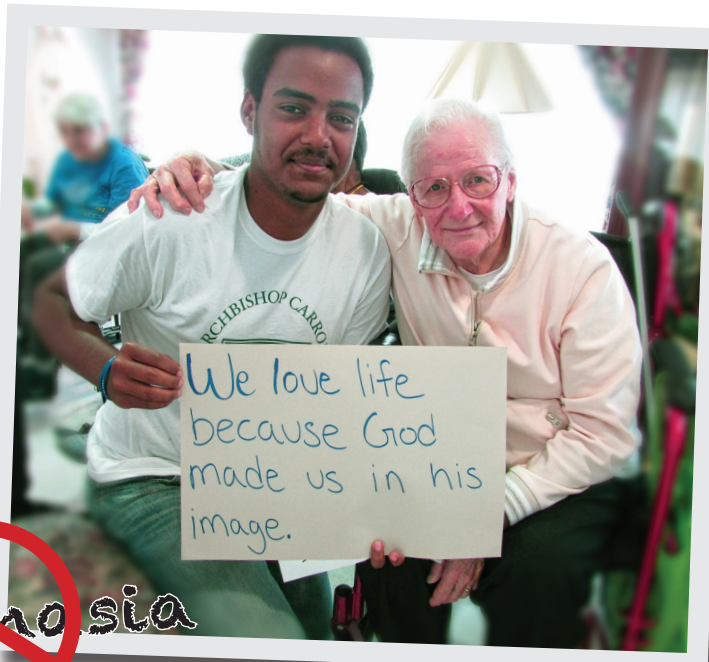 RCHBISHOP CARRO
We love life
because God
made us in his
image.
nasia